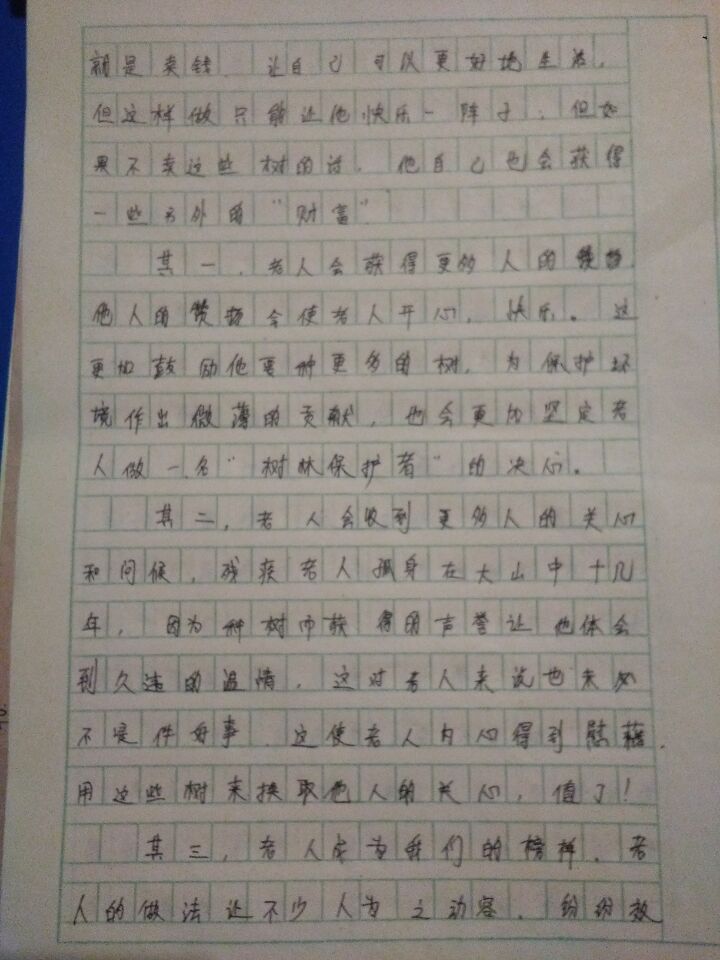 就是卖钱，让自己可以更好地生活，
但这样做只能让他快乐一阵子，但如
果不卖这些树的话，他自己也会获得
一些另外的“财富”
其一，老人会获得更多人的赞扬，
他人的赞扬会使老人开心，快乐。这
更加鼓励他要种更多的树，为保护环
境作出微薄的贡献，也会更加坚定老
人做一名“树林保护者”的决心。
其二，老人会收到更多人的关心
和问候，残疾老人孤身在大山中十几
年，因为种树而获得的声誉让他体会
到久违的温情，这对老人来说也未必
不是件好事，这使老人内心得到慰藉，
用这些树来换取他人的关心，值了！
其三，老人成为我们的榜样，老
人的做法让不少人为之动容，纷纷效